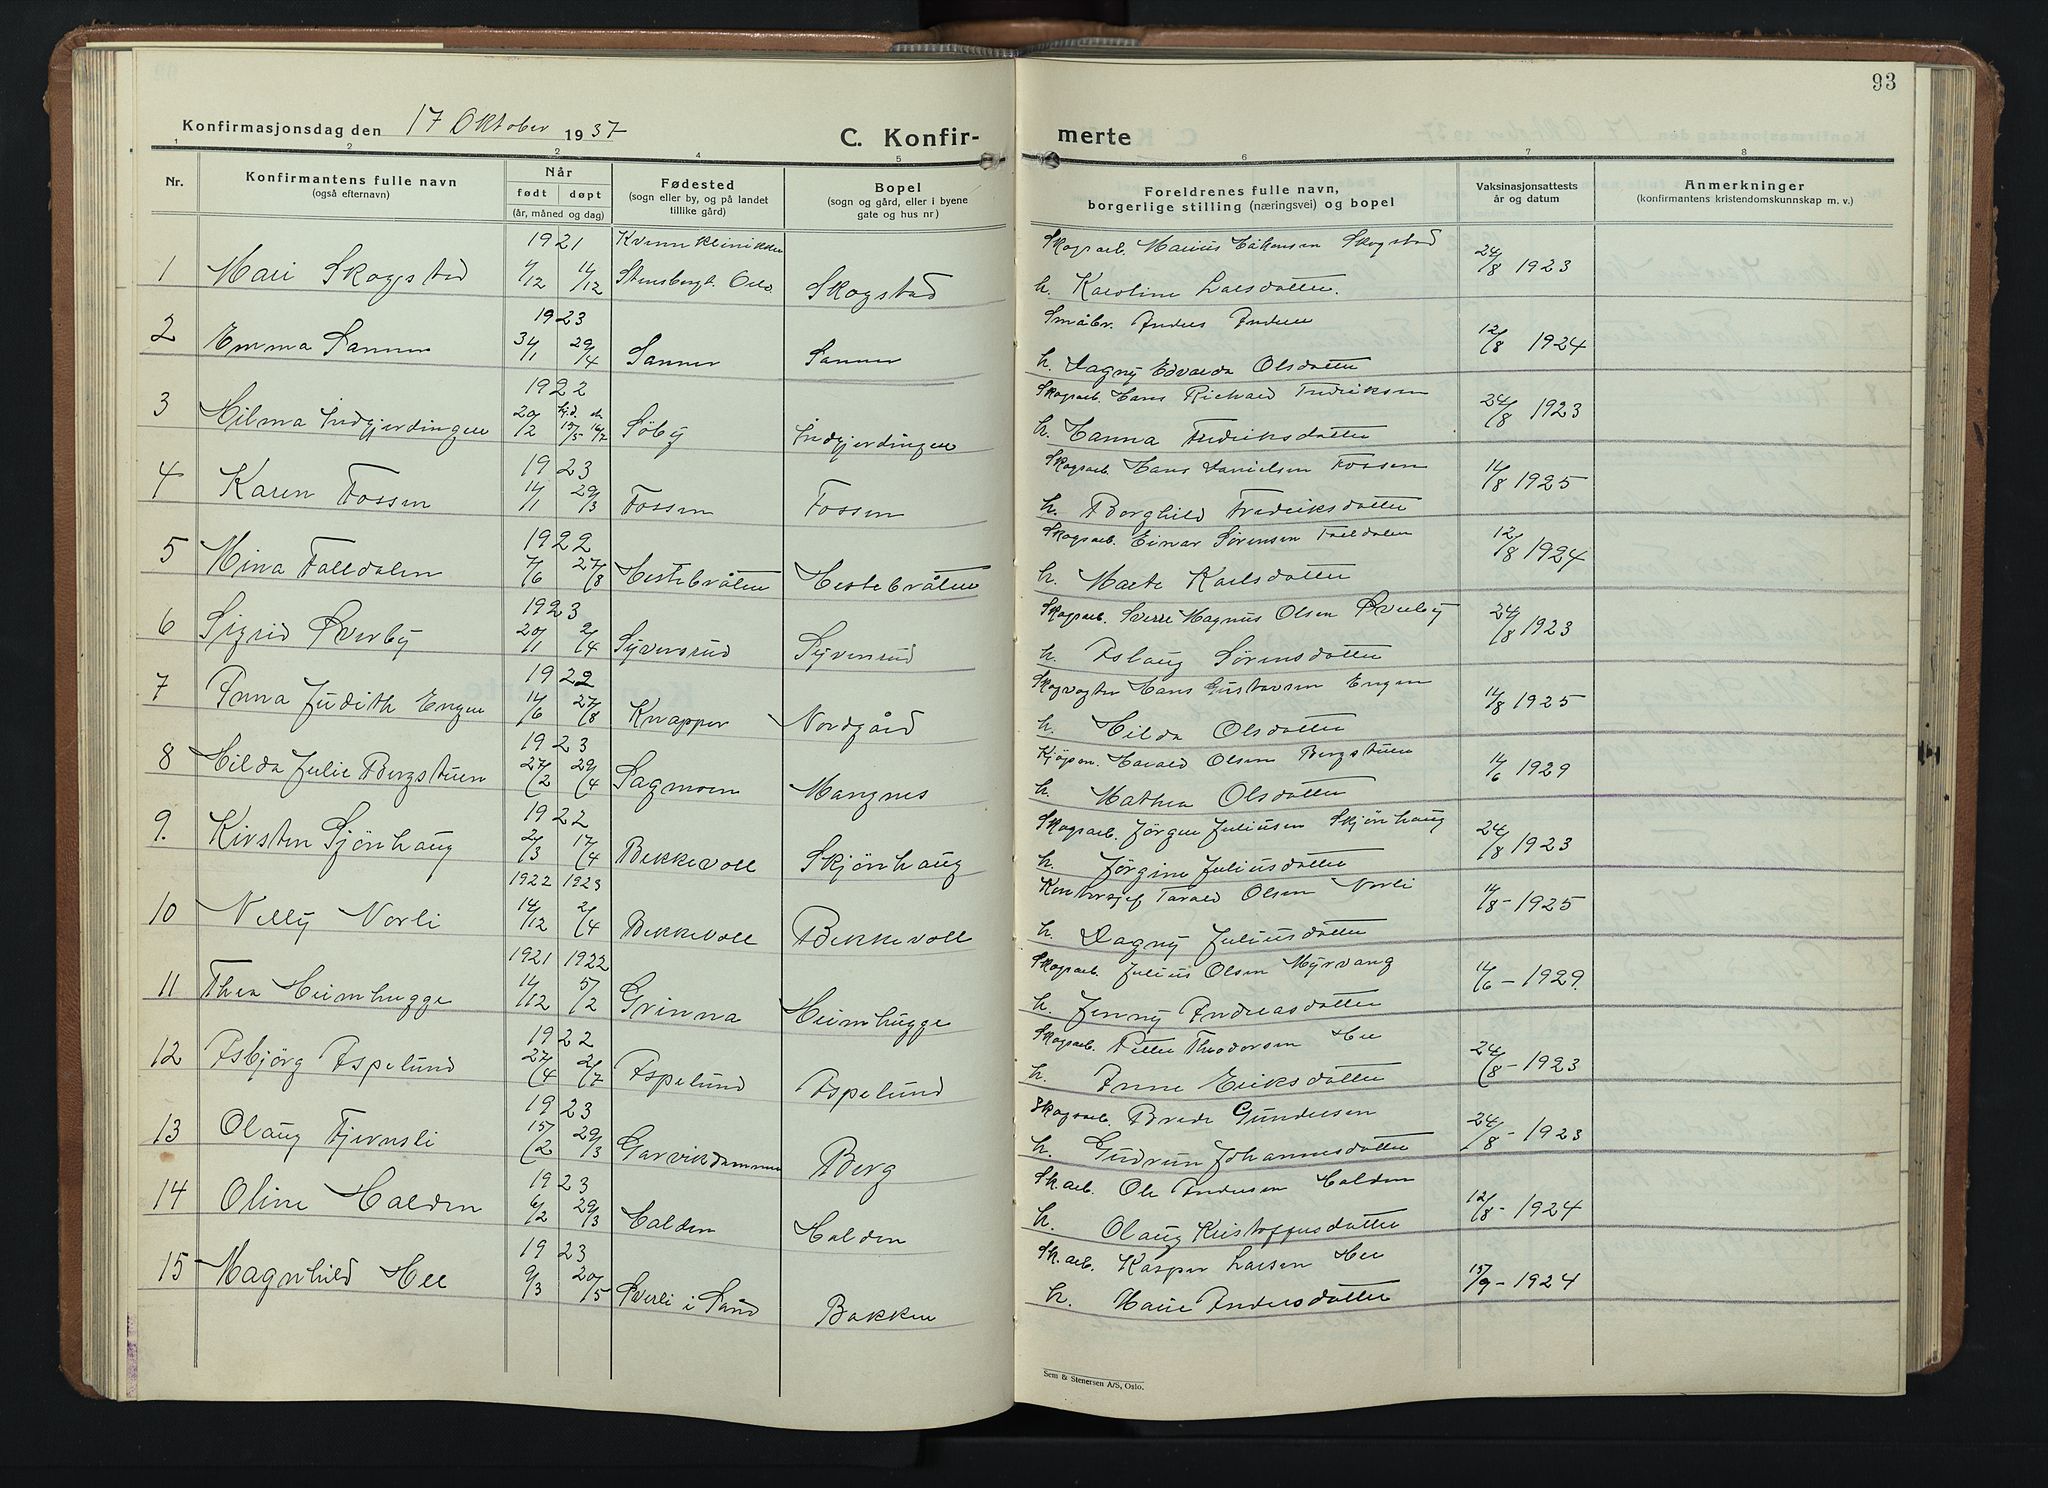 93
Konfirmasjonsdag den 17 Oktober 1937
C. Konfir- merte
1 2 2 4 5 6 7 8
Nr. Konfirmantens fulle navn (også efternavn) Når født døpt (år, måned og dag) Fødested (sogn eller by, og på landet tillike gård) Bopel (sogn og gård, eller i byene gate og hus nr) Foreldrenes fulle navn, borgerlige stilling (næringsvei) og bopel Vaksinasjonsattests år og datum Anmerkninger (konfirmantens kristendomskunnskap m. v.)
1921 Kvinneklinikken Skogsarb. Marius Håkonsen Skogstad
1 Mari Skogstad 11/12 Stensbergt. Oslo Skogstad h. Karoline Larsdatter. 24/8 1923
1923 Småbr. Anders Andersen
2 Emma Sanner 31/1 29/4 Sanner Sanner h. Dagny Edvarda Olsdatter 12/8 1924
1922 Skogsarb. Hans Richard Fredriksen
3 Hilma Indgjerdingen 20/2 hjd. 15/5 k. 16/7 Søby Indgjerdingen h. Hanna Fredriksdatter 24/8 1923
1923 Skogsarb. Hans Danielsen Fossen
4 Karen Fossen 14/1 29/3 Fossen Fossen h. Borghild Fredriksdatter 14/8 1925
1922 Skogsarb. Einar Sørensen Falldalen
5 Mina Falldalen 7/6 27/8 Hestebråten Hestebråten h. Marte Karlsdatter 12/8 1924
1923 Skogsarb. Sverre Magnus Olsen Øverby
6 Sigrid Øverby 20/1 2/4 Syversrud Syversrud h. Aslaug Sørensdatter 24/8 1923
1922 Skogvogter Hans Gustavsen Engen
7 Anna Judith Engen 14/6 27/8 Knapper Nordgård h. Hilda Olsdatter 14/8 1925
1923 Kjøpm. Harald Olsen Bergstuen
8 Hilda Julie Bergstuen 27/2 29/4 Sagmoen Mangnes h. Mathea Olsdatter 11/6 1929
1922 Skogsarb. Jørgen Juliussen Skjønhaug
9. Kirsten Sjønhaug 2/3 17/4 Bekkevoll Skjønhaug h. Jørgine Juliusdatter 24/8 1923
1922 1923 Kontorsjef Tarald Olsen Norli
10 Nelly Norli 14/12 2/4 Bekkevoll Bekkevoll h. Dagny Juliusdatter 14/8 - 1925
1921 1922 Skogsarb. Julius Olsen Myrvang
11 Thea Heimhugge 14/12 5/2 Grinna Heimhugge h. Jenny Andreasdatter 14/6 - 1929.
1922 Skogsarb. Petter Theodorsen Hee
12 Asbjørg Aspelund 27/4 2/7 Aspelund Aspelund h. Anne Eriksdatter 24/8 - 1923
1923 Skogsarb. Brede Gundersen
13 Olaug Tjernsli 15/2 29/3 Garvikdammen Berg h. Gudrun Johannesdatter 24/8 - 1923
1923 Sk.arb. Ole Andersen Halden
14 Oline Halden 6/2 29/3 Halden Halden h. Olaug Kristoffersdatter 12/8 - 1924
1923 Sk.arb. Kasper Larsen Hee
15 Magnhild Hee 9/3 20/5 Sverli i Sand Bakken h. Marie Andersdatter 15/9 - 1924
Sem & Stenersen A/S, Oslo.